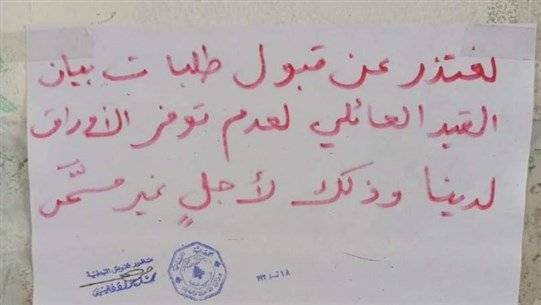 نعتذر عن قبول طلبات بيان
القيد العائلي لعدم توفر الأوراق
لدينا وذلك لأجلٍ غير مسمَّى